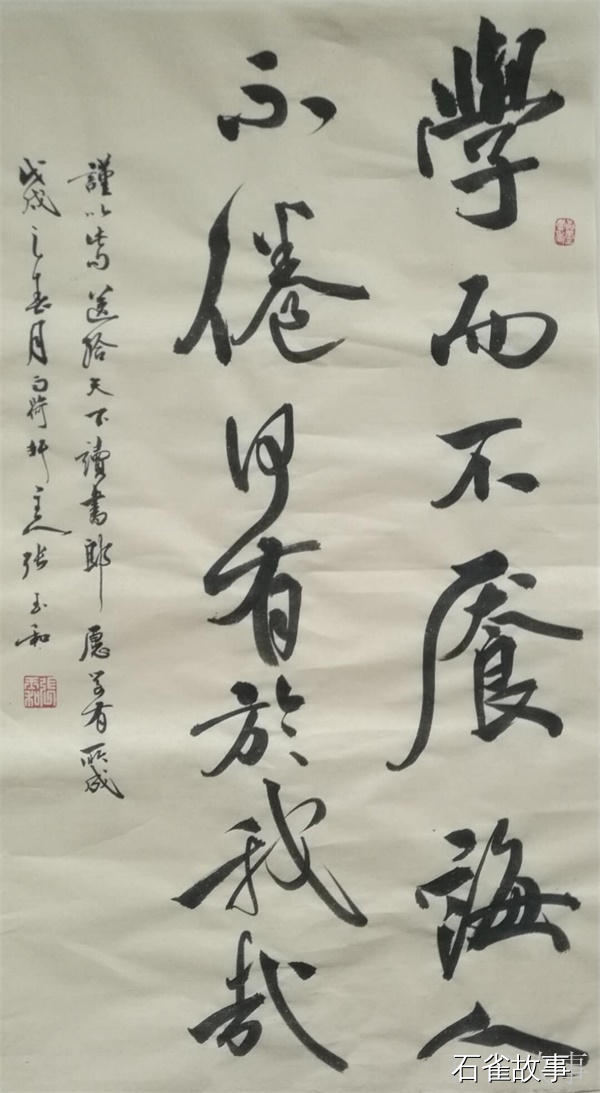 學而不餍誨人
不倦何有於我哉
謹以 送给天下讀書郎愿学有所成
戊戌之春月 荷軒主人张玉和
張玉和
石雀故事